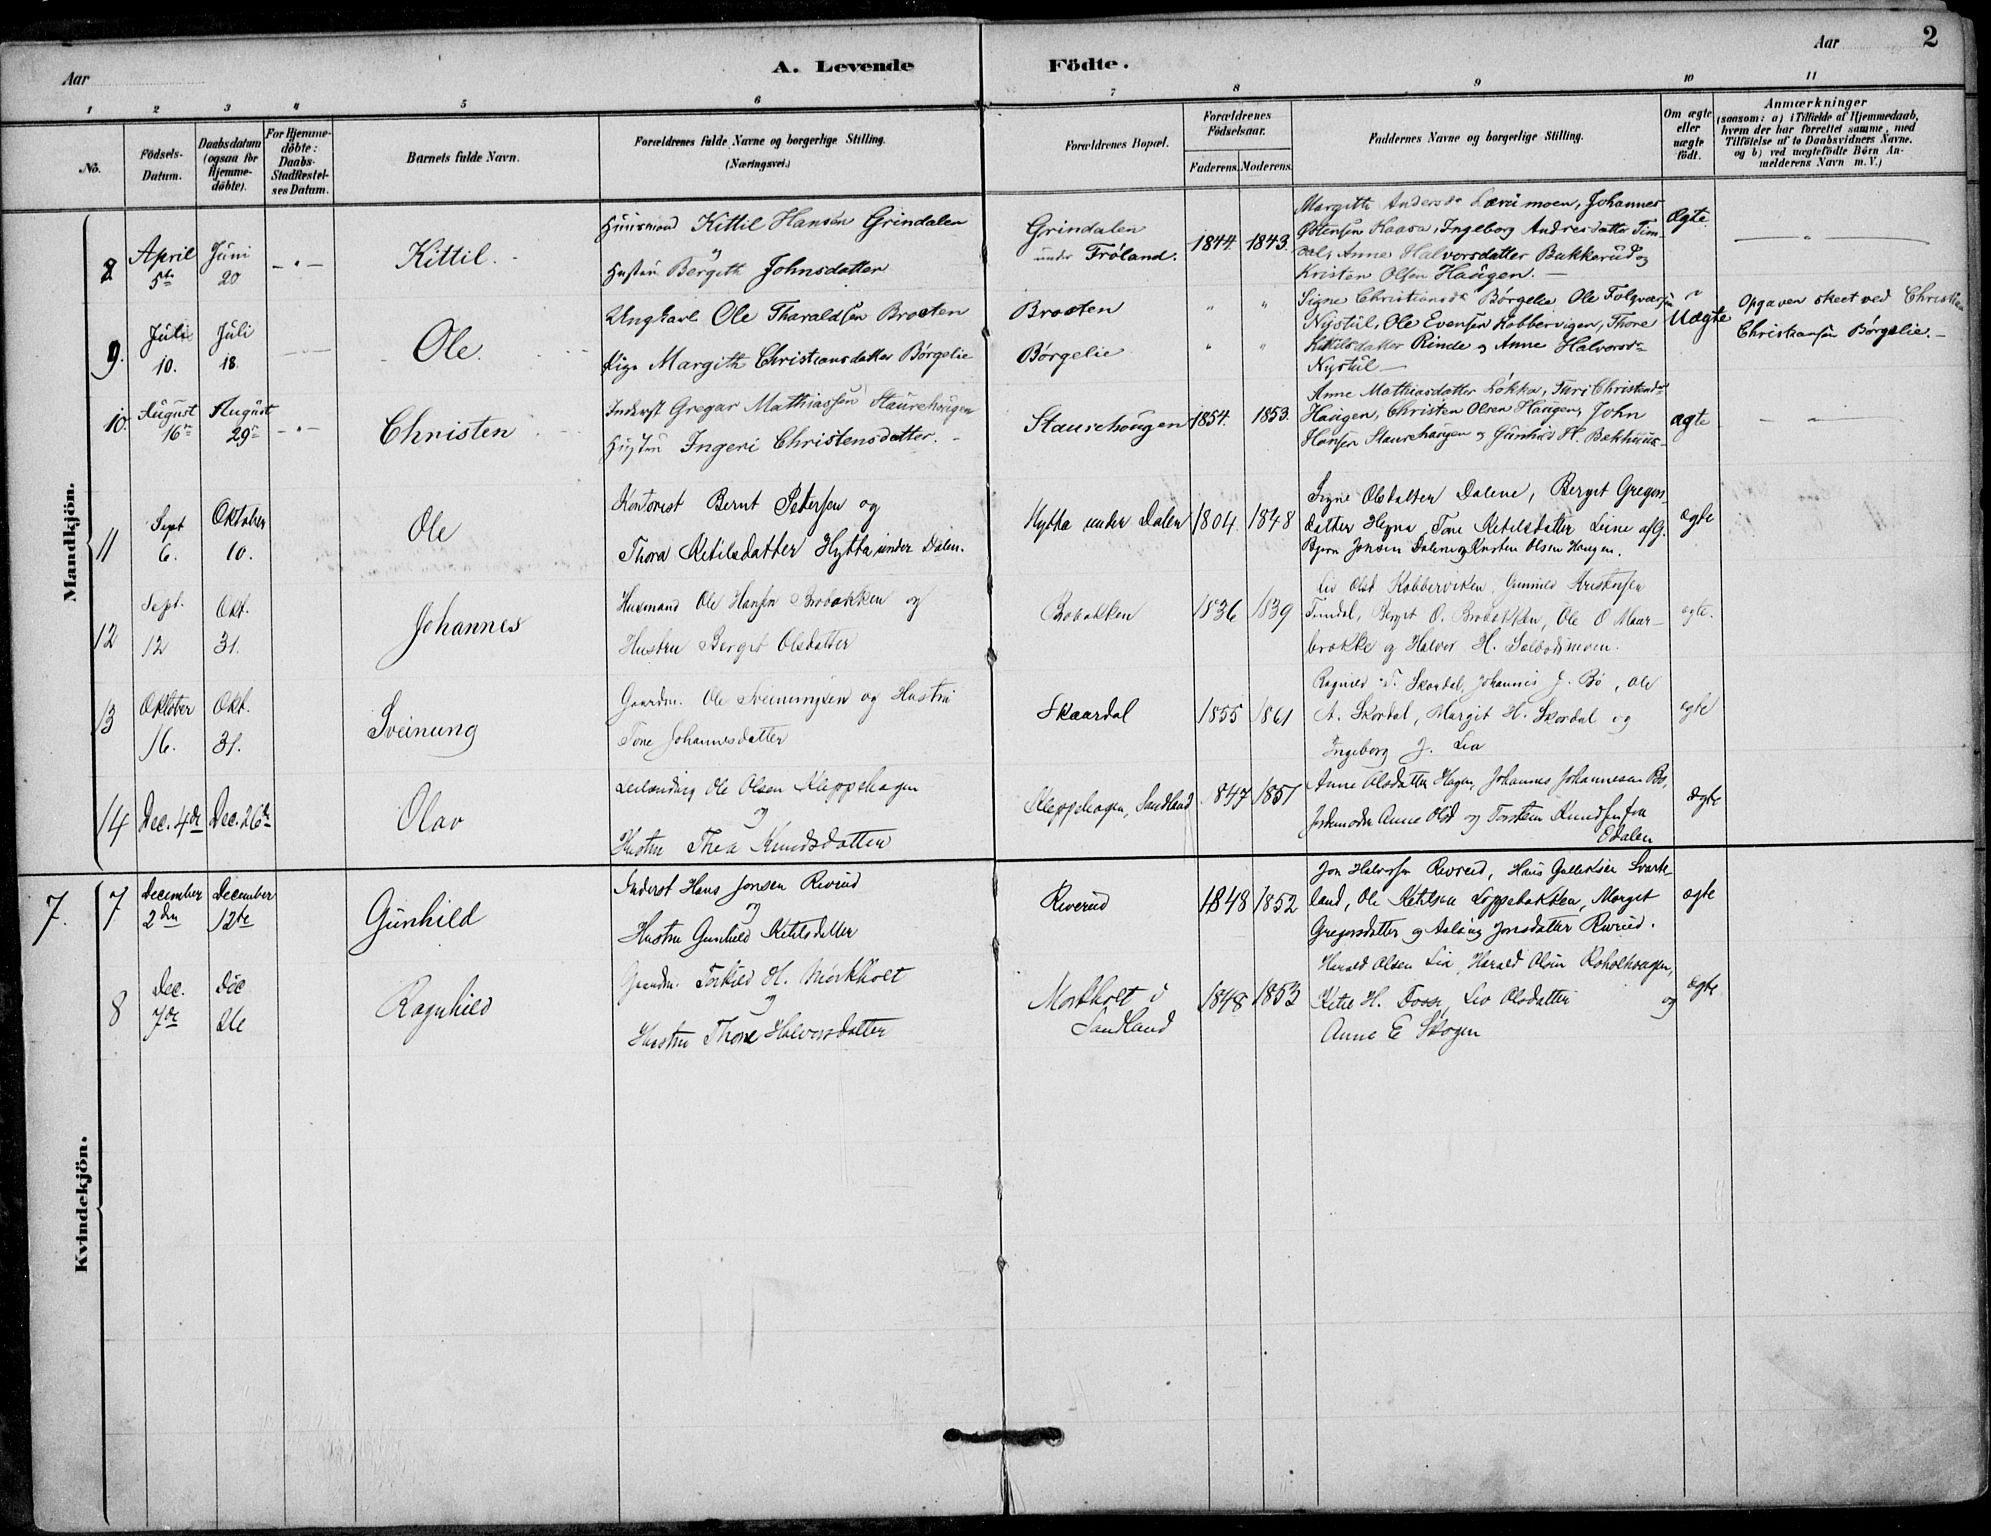 Aar
A. Levende Födte.
Aar
2
1 2 3 4 5 6 7 8 9 10 11
No.
Födsels-
Datum.
Daabsdatum
(ogsaa for
Hjemme-
döbte).
For Hjemme-
döbte:
Daabs-
Stadfæstel-
ses Datum.
Barnets fulde Navn.
Forældrenes fulde Navne og borgerlige Stilling.
(Næringsvei.)
Forældrenes Bopæl.
Forældrenes
Födselsaar.
Faderens. Moderens.
Faddernes Navne og borgerlige Stilling.
Om ægte
eller
uægte
födt.
Anmærkninger
(saasom: a) i Tilfælde af Hjemmedaab,
hvem der har forrettet samme, med
Tilföielse af to Daabsvidners Navne.
og b) ved uægtefödte Börn An-
melderens Navn m. V.)
Mandkjön.
8.
April
5te
Juni
20
Kittil.
Huusmand Kittil Hansen Grindalen
og
Hustru Bergith Johnsdatter
Grindalen
under Fröland.
1844. 1843.
Margith Andersd. Lærumoen, Johannes
Kaasa, Ingeborg Andresdatter Tin-
dal, Anne Halvorsdatter Bukkerud og
Kristen Olsen Haugen.
Ægte.
9.
Juli
10.
Juli
18.
Ole.
Ungkarl Ole Tharaldsen Broten
Pige Margith Christiansdatter Børgelie
Broten
Børgelie
Signe Christiansd. Børgelie Ole Folqvarsen
Nystul, Ole Evensen Kobbervigen, Thore
Kittilsdatter Rinde og Anne Halvorsd.
Nystul
Uægte
Opgaven skeet ved Christian
Christiansen Børgelie.
10.
August
16de
August
29de
Christen
Inderst Gregar Mathiassen Staurehougen
Hustru Ingeri Christensdatter.
Staurehougen
1854. 1853.
Anne Mathiasdatter Løkka, Turi Christend.
Haugen, Christen Olsen Haugen, John
Hansen Staurehaugen og Gunhild H. Bekhuus
ægte
11
Sept
6.
Oktober
10.
Ole
Kontorist Bernt Petersen og
Thora Ketilsdatter Hytta under Dalen.
Hytta under Dalen
1804. 1848
Signe Olsdatter Dalene, Berget Gregers-
datter Hegna Tone Ketilsdatter Leine af G.
Bjørn Jonsen Dalene og Kristen Olsen Haugen.
ægte
12
Sept.
12
Okt.
31.
Johannes
Husmand Ole Hansen Brobakken og
Hustru Berget Olsdatter
Bobakken
1836 1839
Liv Olsd Kobberviken, Gunnild Kristensen
Tindal, Berget O. Brobakken, Ole O Maar-
brakke og Halvor H. Selbodmoen.
ægte.
13
Oktober
16.
Okt.
31.
Sveinung
Gaardm. Ole Sveinungsen og Hustru
Tone Johannesdatter
Skaardal
1855 1861
Ragnild T. Skordal, Johannes J. Bø, Ole
A. Skordal, Margit H. Skordal og
Ingeborg J. Lia
ægte
14
Dec. 4de
Dec. 26de
Olav
Leilænding Ole Olsen Kleppehagen
og
Hustru Thea Knudsdatter
Kleppehagen, Sandland
847 1851
Anne Olsdatter Hagen, Johannes Johannesen Bø,
Jordemoder Anne Olsd og Torstein Knudsen fra
Edalen
ægte
Kvindekjön.
7.
7
December
2den
December
12te
Gunhild
Inderst Hans Jonsen Riverud
og
Hustru Gunhild Ketilsdatter
Riverud
1848 1852
Jon Halvorsen Riverud, Hans Gulleksen Svarte-
land, Ole Ketilsen Loppebakken, Marget
Gregersdatter og Aslaug Jonsdatter Riverud.
ægte
8
Dec.
7de
Dec
Ragnhild
Gaardm. Torkild H. Mørkholt
og
Hustru Thone Halvorsdatter
Mørkholt i
Sandland
1848 1853
Harald Olsen Lia, Harald Olsen Roholthaagen,
Ketil H. Fosse, Liv Olsdatter og
Anne E Skogen
ægte